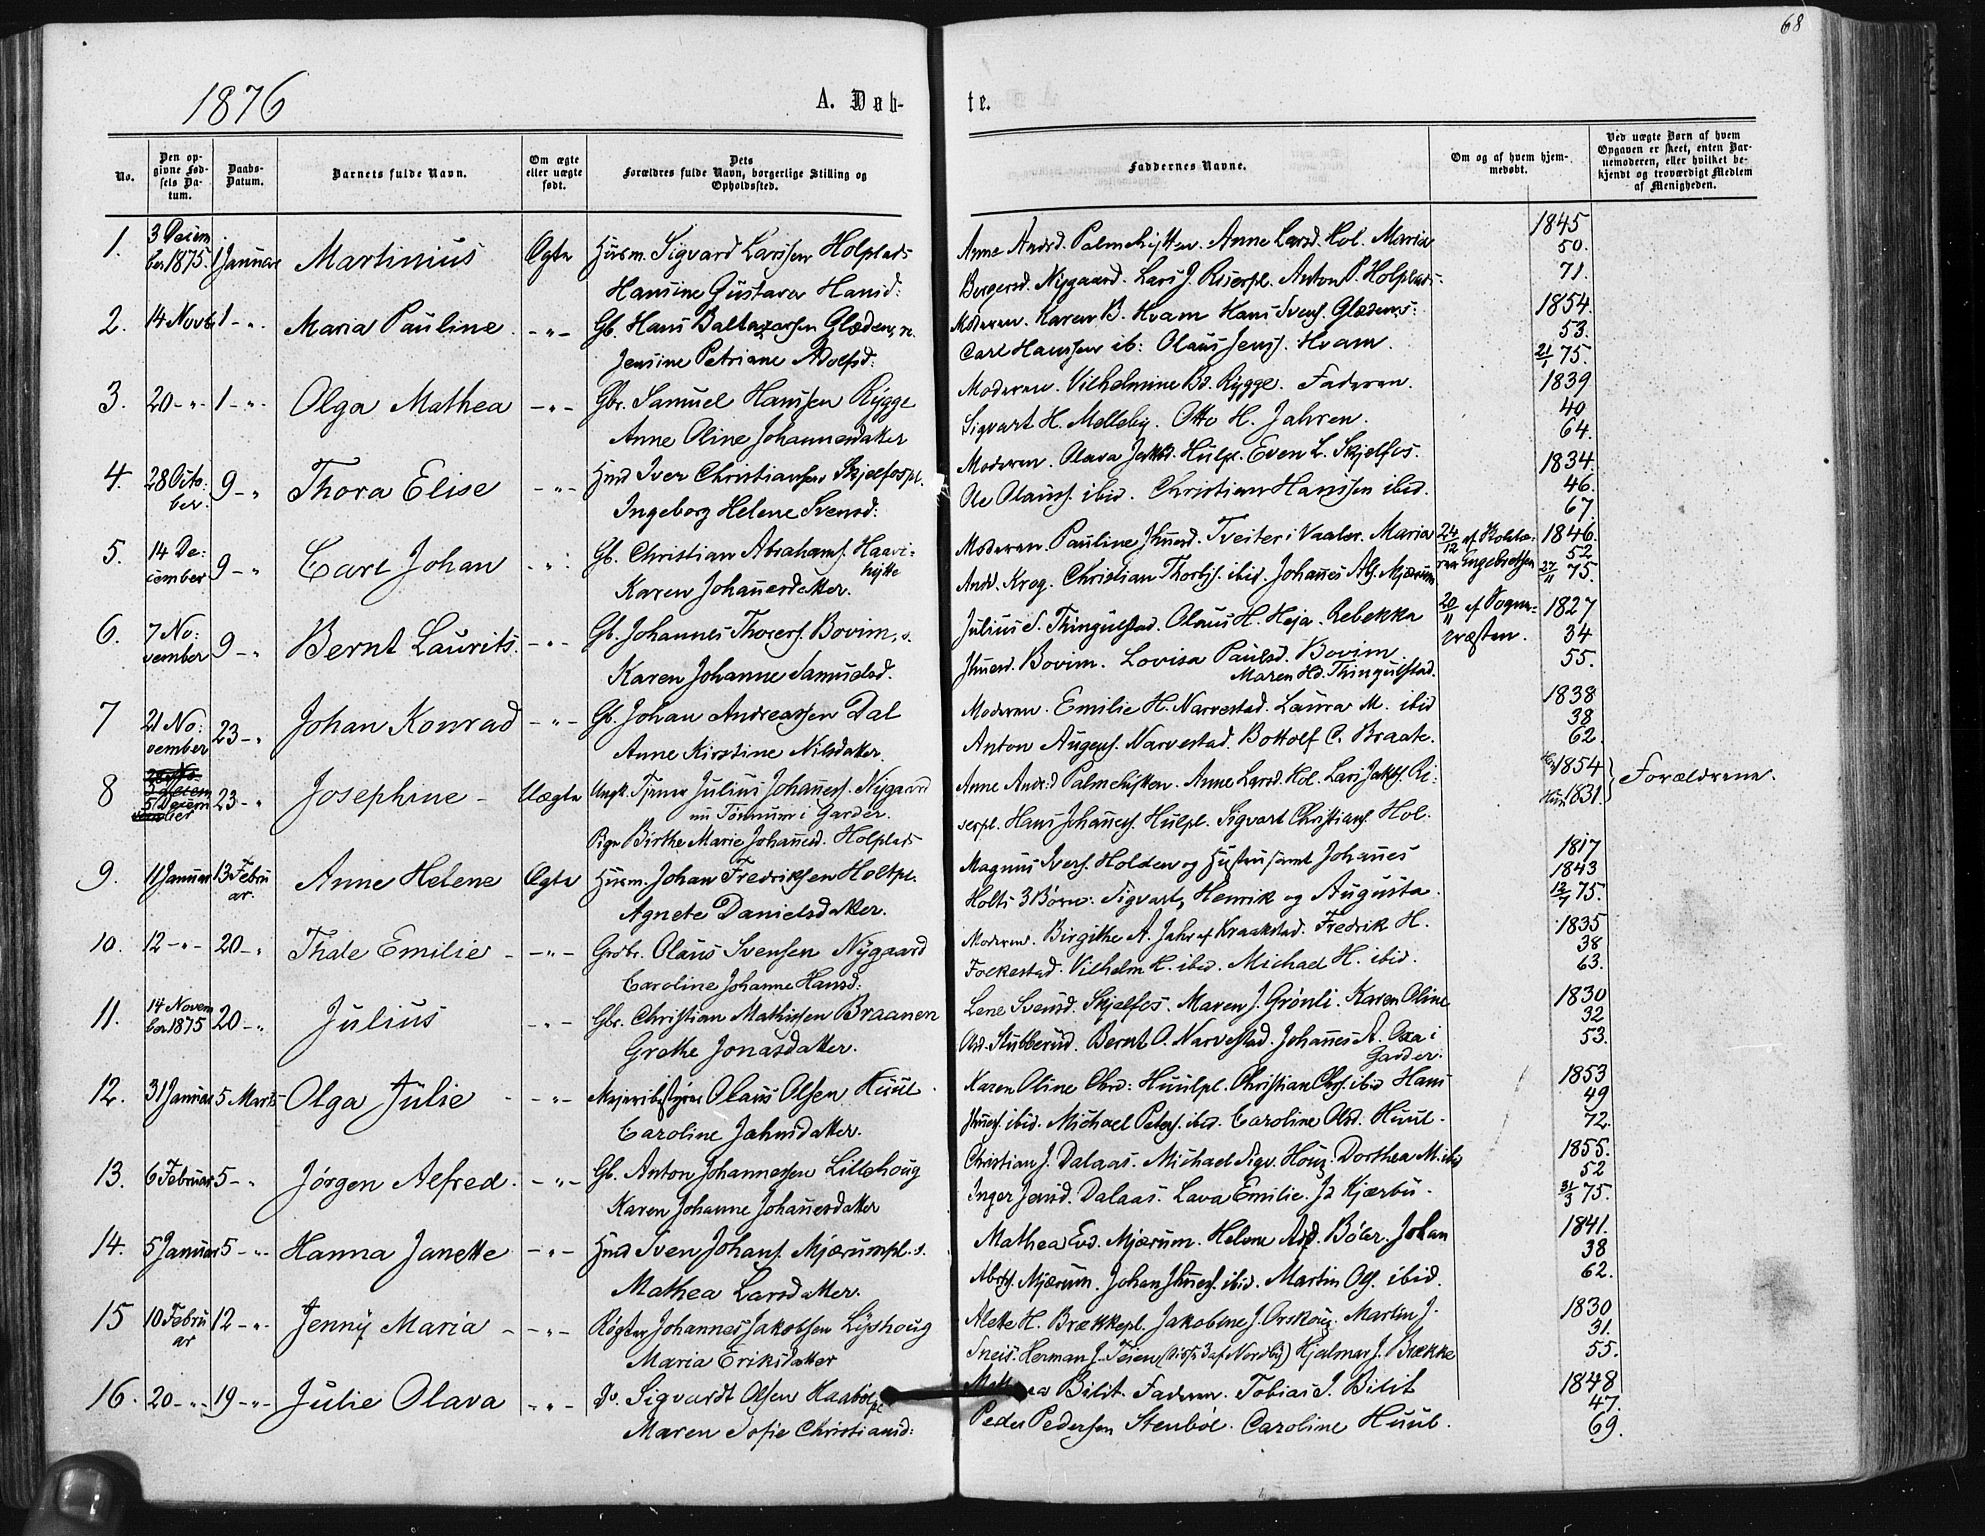 68
1876
A. Døb-
te.
No.
Den op-
givne Fød-
sels Da-
tum.
Daabs-
Datum.
Barnets fulde Navn.
Om ægte
eller uægte
født.
Dets
Forældres fulde Navn, borgerlige Stilling og
Opholdssted.
Faddernes Navne.
Om og af hvem hjem-
medøbt.
Ved uægte Børn af hvem
Opgaven er skeet, enten Bar-
nemoderen, eller hvilket be-
kjendt og troværdigt Medlem
af Menigheden.
1. 3 Decem
ber 1875. 1 Januar Martinius Ægte Husm. Sigvard Larssen Holplads
Hansine Gustava Hansd:
Anne Andrd. Palmehytten. Anne Larsd. Hol. Maria 1845
50.
Bergersd. Nygaard. Lars J. Riserpl. Anton P. Holplads. 71.
2. 14 Novb. 1 -"- Maria Pauline -"- Gb. Hans Baltazarsen Glødens, n.
Jensine Petriane Adolfsd:
Moderen. Karen B. Hvam Hans Svens. Glødens: 1854.
53.
Carl Hanssen ib: Olaus Jens. Hvam. 21/1 75.
3. 20 -"- 1 -"- Olga Mathea -"- Gbr. Samuel Hanssen Rygge
Anne Oline Johannesdatter
Moderen. Vilhelmine Bd. Rygge. Faderen. 1839
40
Sigvart H. Melleby. Otto H. Jahren. 64.
4. 28 Octo:
ber. 9 -" Thora Elise -"- Husmd Iver Christiansen Skjelfospl.
Ingeborg Helene Svensd:
Moderen. Olava Jakbd. Hulpl. Even L. Skjelfos. 1834.
46.
Ole Olaus. ibid. Christian Hanssen ibid. 67.
5. 14 De:
cember 9 -" Carl Johan -"- Gb. Christian Abrahams. Haavi-
hytte
Karen Johannesdatter.
Moderen. Pauline Jhnesd. Tveiter i Vaaler. Maria 24/12 af 1846.
52
Andd. Krog. Christian Thorbjs. ibid. Johannes Als. Mjærum Engebretsen 27/11 75.
6. 7 No:
vember 9 -" Bernt Laurits. -"- Gb. Johannes Thores. Bovim, s.
Karen Johanne Samuelsd.
Julius S. Thingulstad. Olaus H. Heja. Rebekka 20/11 af Sogne- 1827
præsten. 34
Jhnesd. Bovim. Lovisa Paulsd. Bovim. 55.
Maren Hd. Thingulstad.
7 21 No:
vember 23 -" Johan Konrad -"- Gb. Johan Andreassen Dal
Anne Kirstine Nilsdatter.
Moderen. Emilie H. Narvestad. Laura M. ibid 1838
38
Anton Auges. Narvestad. Bottolf C. Braate. 62.
8 5 Decem
ber 23 -" Josephine - Uægte Ungk. Tjener Julius Johannes. Nygaard
nu Tømmum i Garder.
Pige Birthe Marie Johannesd. Holplads
Anne Andr:d Palmehytten. Anne Larsd. Hol. Lars Jakbs. Ri- Han 1854 Forældrene.
Hun 1831.
serpl. Hans Johannes. Hulpl. Sigvart Christians. Hol.
9. 11 Januar 13 Febru
ar. Anne Helene Ægte Husm. Johan Fredriksen Holtpl.
Agnete Danielsdatter.
Magnus Ivers. Holden og Hustru samt Johannes 1817
1843
Holts 3 Børn: Sigvart, Henrik og Augusta. 12/7 75.
10. 12 -"- 20 -" Thale Emilie -"- Grdbr. Olaus Svensen Nygaard
Caroline Johanne Hansd:
Moderen. Birgithe A. Jahr af Kraakstad. Fredrik H. 1835
38
Folkestad. Vilhelm K. ibid. Michael H. ibid. 63.
11. 14 Novem
ber 1875 20 -" Julius -"- Gbr. Christian Mathissen Braanen
Grethe Jonasdatter.
Lene Svensd. Skjelfos. Maren J. Grønli. Karen Oline 1830
32
Olsd. Stubberud. Bernt O. Narvestad. Johannes A. Oxa i 53.
Garder.
12. 31 Januar 5 Marts Olga Julie -"- Meieribestyrer Olaus Olsen Huul
Caroline Jahnsdatter.
Karen Oline Chrd: Huulpl. Christian Chrs. ibid Hans 1853
49
Jhnes. ibid. Michael Peters. ibid. Caroline Olsd. Huul. 72.
13. 6 Februar 5 -" Jørgen Alfred. -"- Gb. Anton Johannessen Lillehoug
Karen Johanne Johannesdatter
Christian J. Dalaas. Michael Sigv. Houg. Dorthea M. ibid 1855.
52
Inger Jensd. Dalaas. Lava Emilie. Js Kjærbu. 31/3 75.
14. 5 Januar 5 -"- Hanna Janette -"- Husmd Sven Johans. Mjærumpl. s.
Mathea Larsdatter.
Mathea Evd. Mjærum. Helene Asd. Bøler. Johan 1841.
38
Abrhs. Mjærum. Johan Jhnes. ibid. Martin Ols. ibid. 62.
15 10 Febru
ar 12 -"- Jenny Maria -"- Røgter Johannes Jakobsen Lyshoug
Maria Eriksdatter
Alette H. Brækkepl. Jakobine J. Orskoug. Martin J. 1830
31.
Sneis. Herman J. Teien Hjalmar J. Brække 55.
16. 20 -"- 19 -"- Julie Olava -"- Iv. Sigvardt Olsen Haabølpl.
Maren Sofie Christiansd:
Bilit. Faderen. Tobias J. Bilit 1848
47.
Peder Pedersen Stenbøl. Caroline Huul. 69.